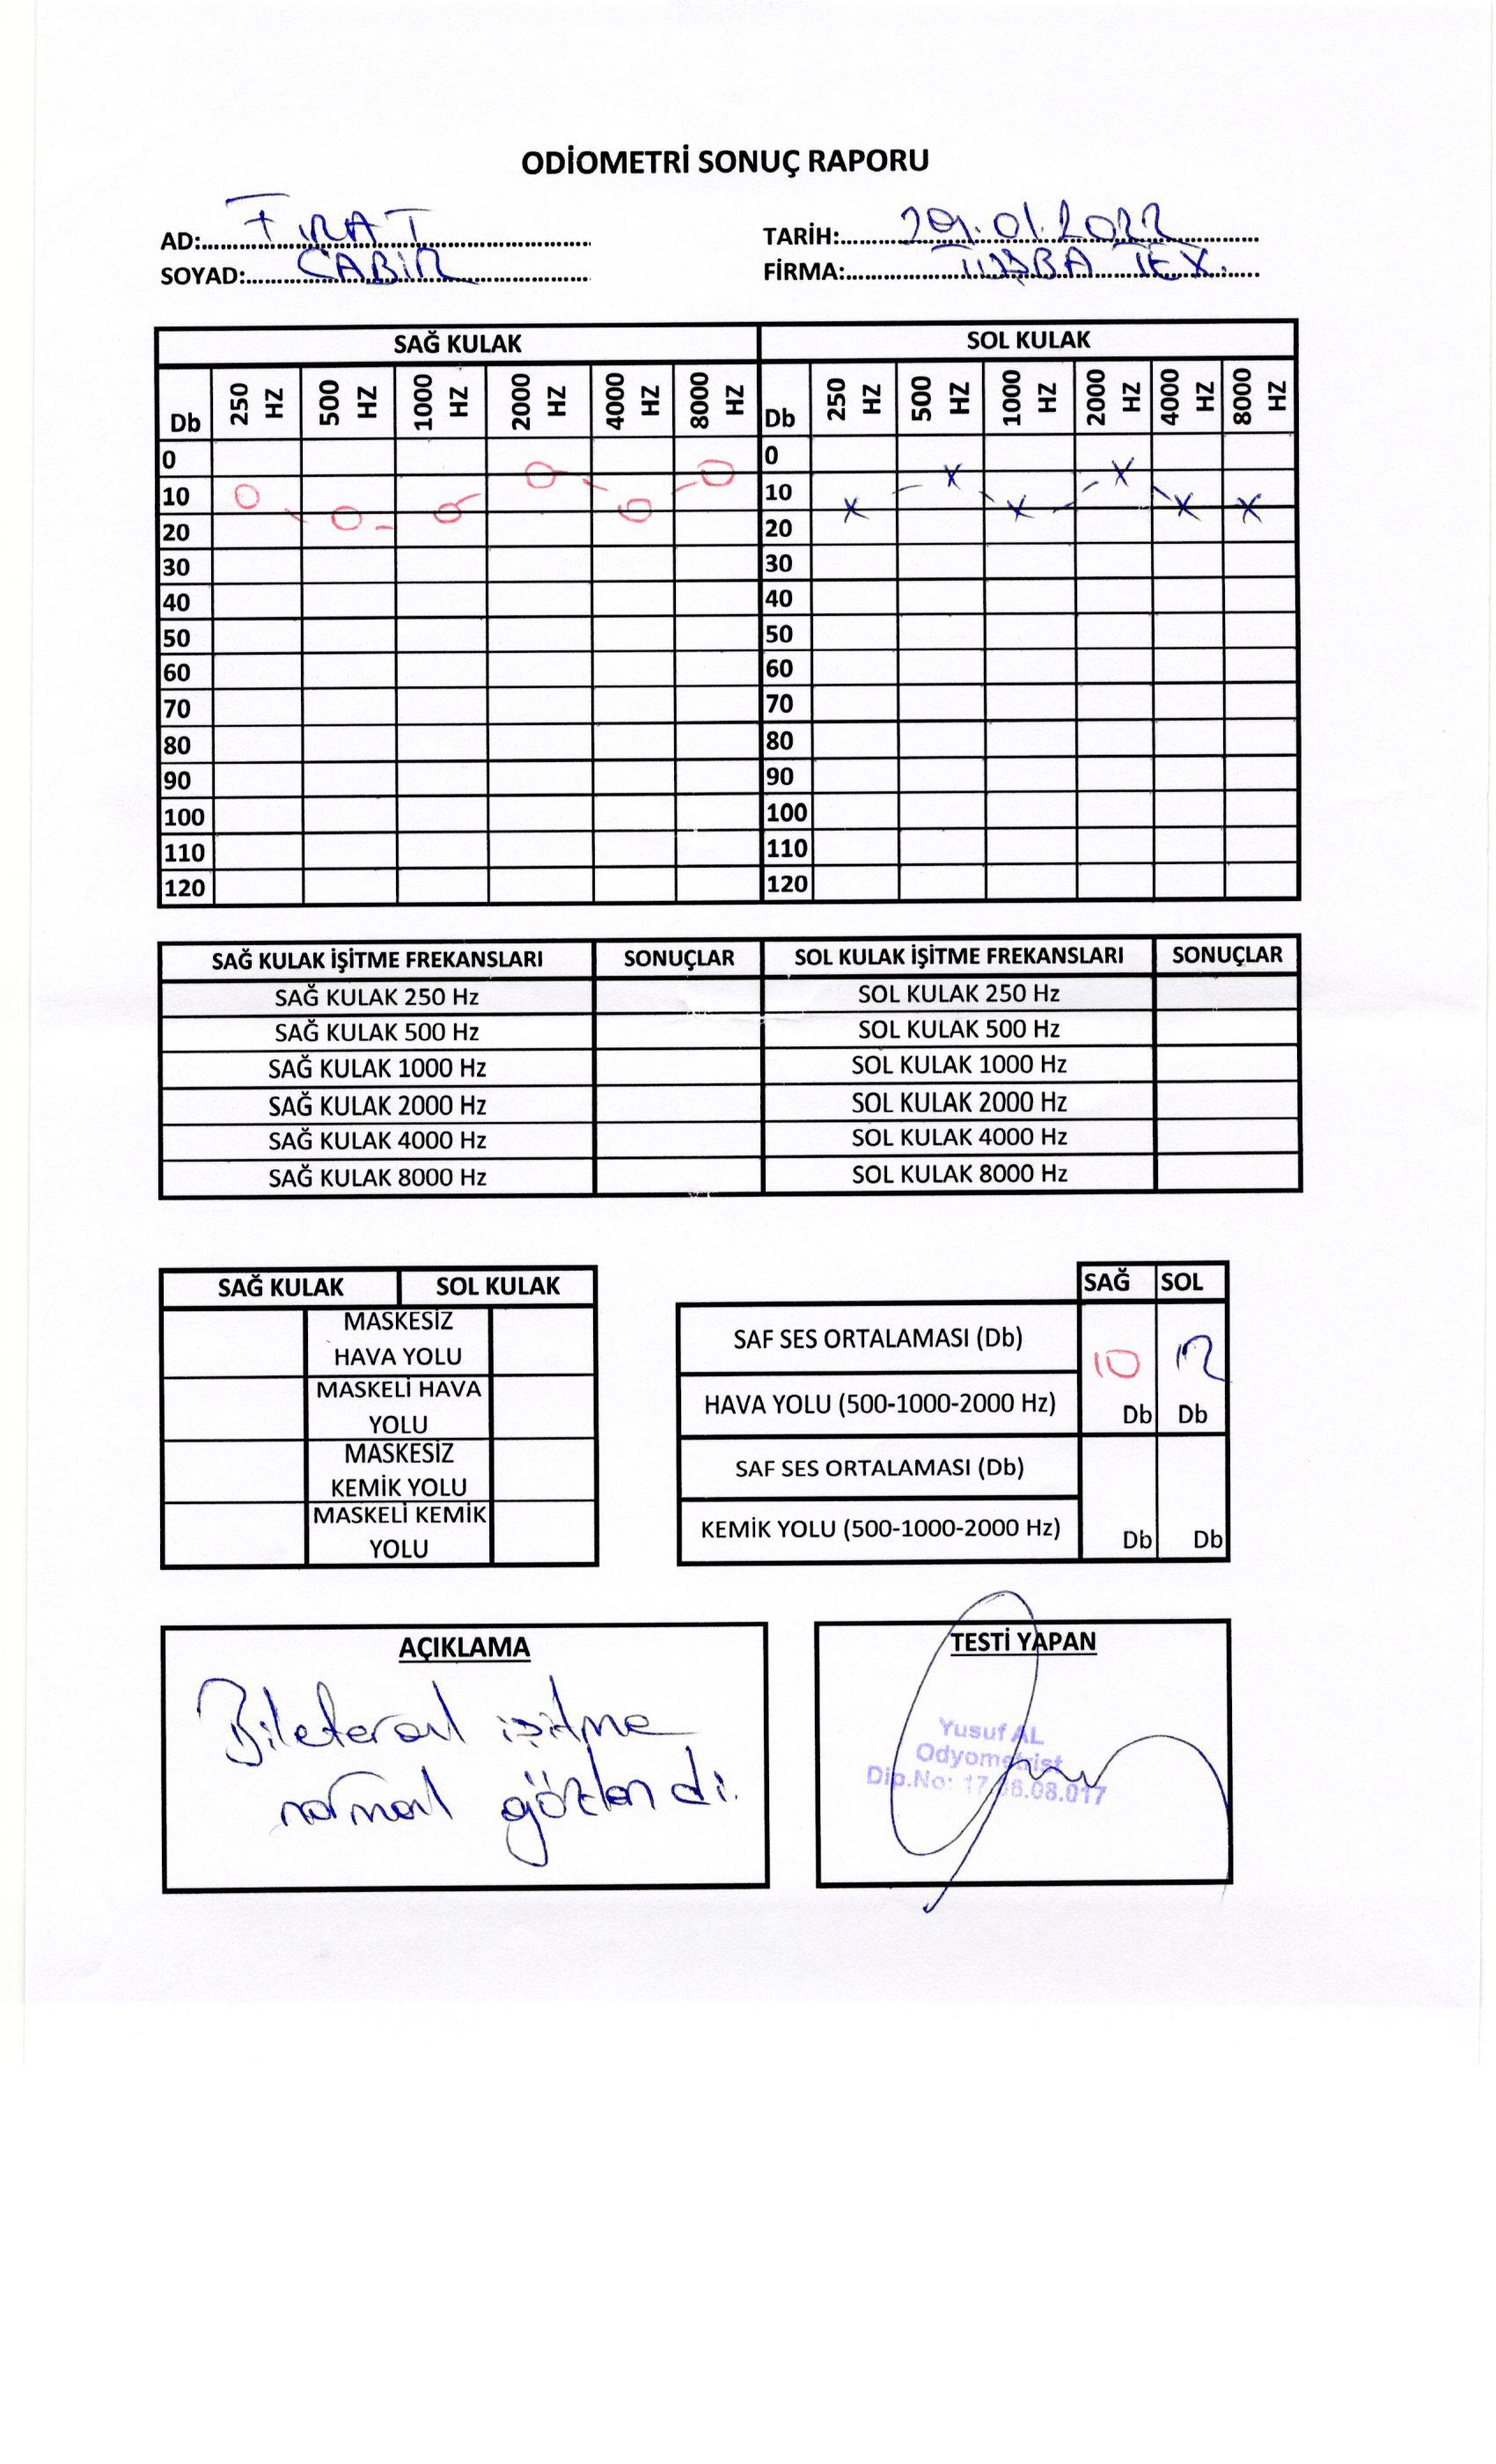 ODİOMETRİ SONUÇ RAPORU
AD: FIRAT TARİH: 29.01.2022
SOYAD: CABIR FİRMA: TUŞBA TEX.
SAĞ KULAK SOL KULAK
Db 250 HZ 500 HZ 1000 HZ 2000 HZ 4000 HZ 8000 HZ Db 250 HZ 500 HZ 1000 HZ 2000 HZ 4000 HZ 8000 HZ
0 0
10 10
20 20
30 30
40 40
50 50
60 60
70 70
80 80
90 90
100 100
110 110
120 120
SAĞ KULAK İŞİTME FREKANSLARI SONUÇLAR SOL KULAK İŞİTME FREKANSLARI SONUÇLAR
SAĞ KULAK 250 Hz SOL KULAK 250 Hz
SAĞ KULAK 500 Hz SOL KULAK 500 Hz
SAĞ KULAK 1000 Hz SOL KULAK 1000 Hz
SAĞ KULAK 2000 Hz SOL KULAK 2000 Hz
SAĞ KULAK 4000 Hz SOL KULAK 4000 Hz
SAĞ KULAK 8000 Hz SOL KULAK 8000 Hz
SAĞ KULAK SOL KULAK
MASKESİZ
HAVA YOLU
MASKELİ HAVA
YOLU
MASKESİZ
KEMİK YOLU
MASKELİ KEMİK
YOLU
SAĞ SOL
SAF SES ORTALAMASI (Db)
10 12
HAVA YOLU (500-1000-2000 Hz) Db Db
SAF SES ORTALAMASI (Db)
KEMİK YOLU (500-1000-2000 Hz) Db Db
AÇIKLAMA
Bileteral işitme
normal gözlendi.
TESTİ YAPAN
Yusuf AL
Odyometrist
Dip.No: